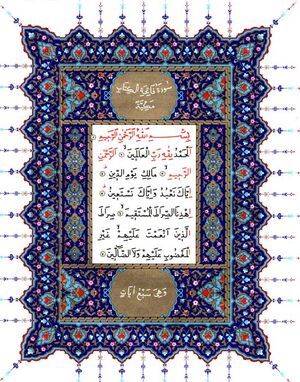 سورة فاتحة الكتاب
مكية
بِسْمِ اللهِ الرَّحْمٰنِ الرَّحِيمِ
اَلْحَمْدُ لِلهِ رَبِّ الْعَالَمِينَ اَلرَّحْمٰنِ
الرَّحِيمِ مَالِكِ يَوْمِ الدِّينِ
اِيَّاكَ نَعْبُدُ وَاِيَّاكَ نَسْتَعِينُ
اِهْدِنَا الصِّرَاطَ الْمُسْتَقِيمَ صِرَاطَ
الَّذِينَ اَنْعَمْتَ عَلَيْهِمْ غَيْرِ
الْمَغْضُوبِ عَلَيْهِمْ وَلَا الضَّالِّينَ
وهي سبع آيات